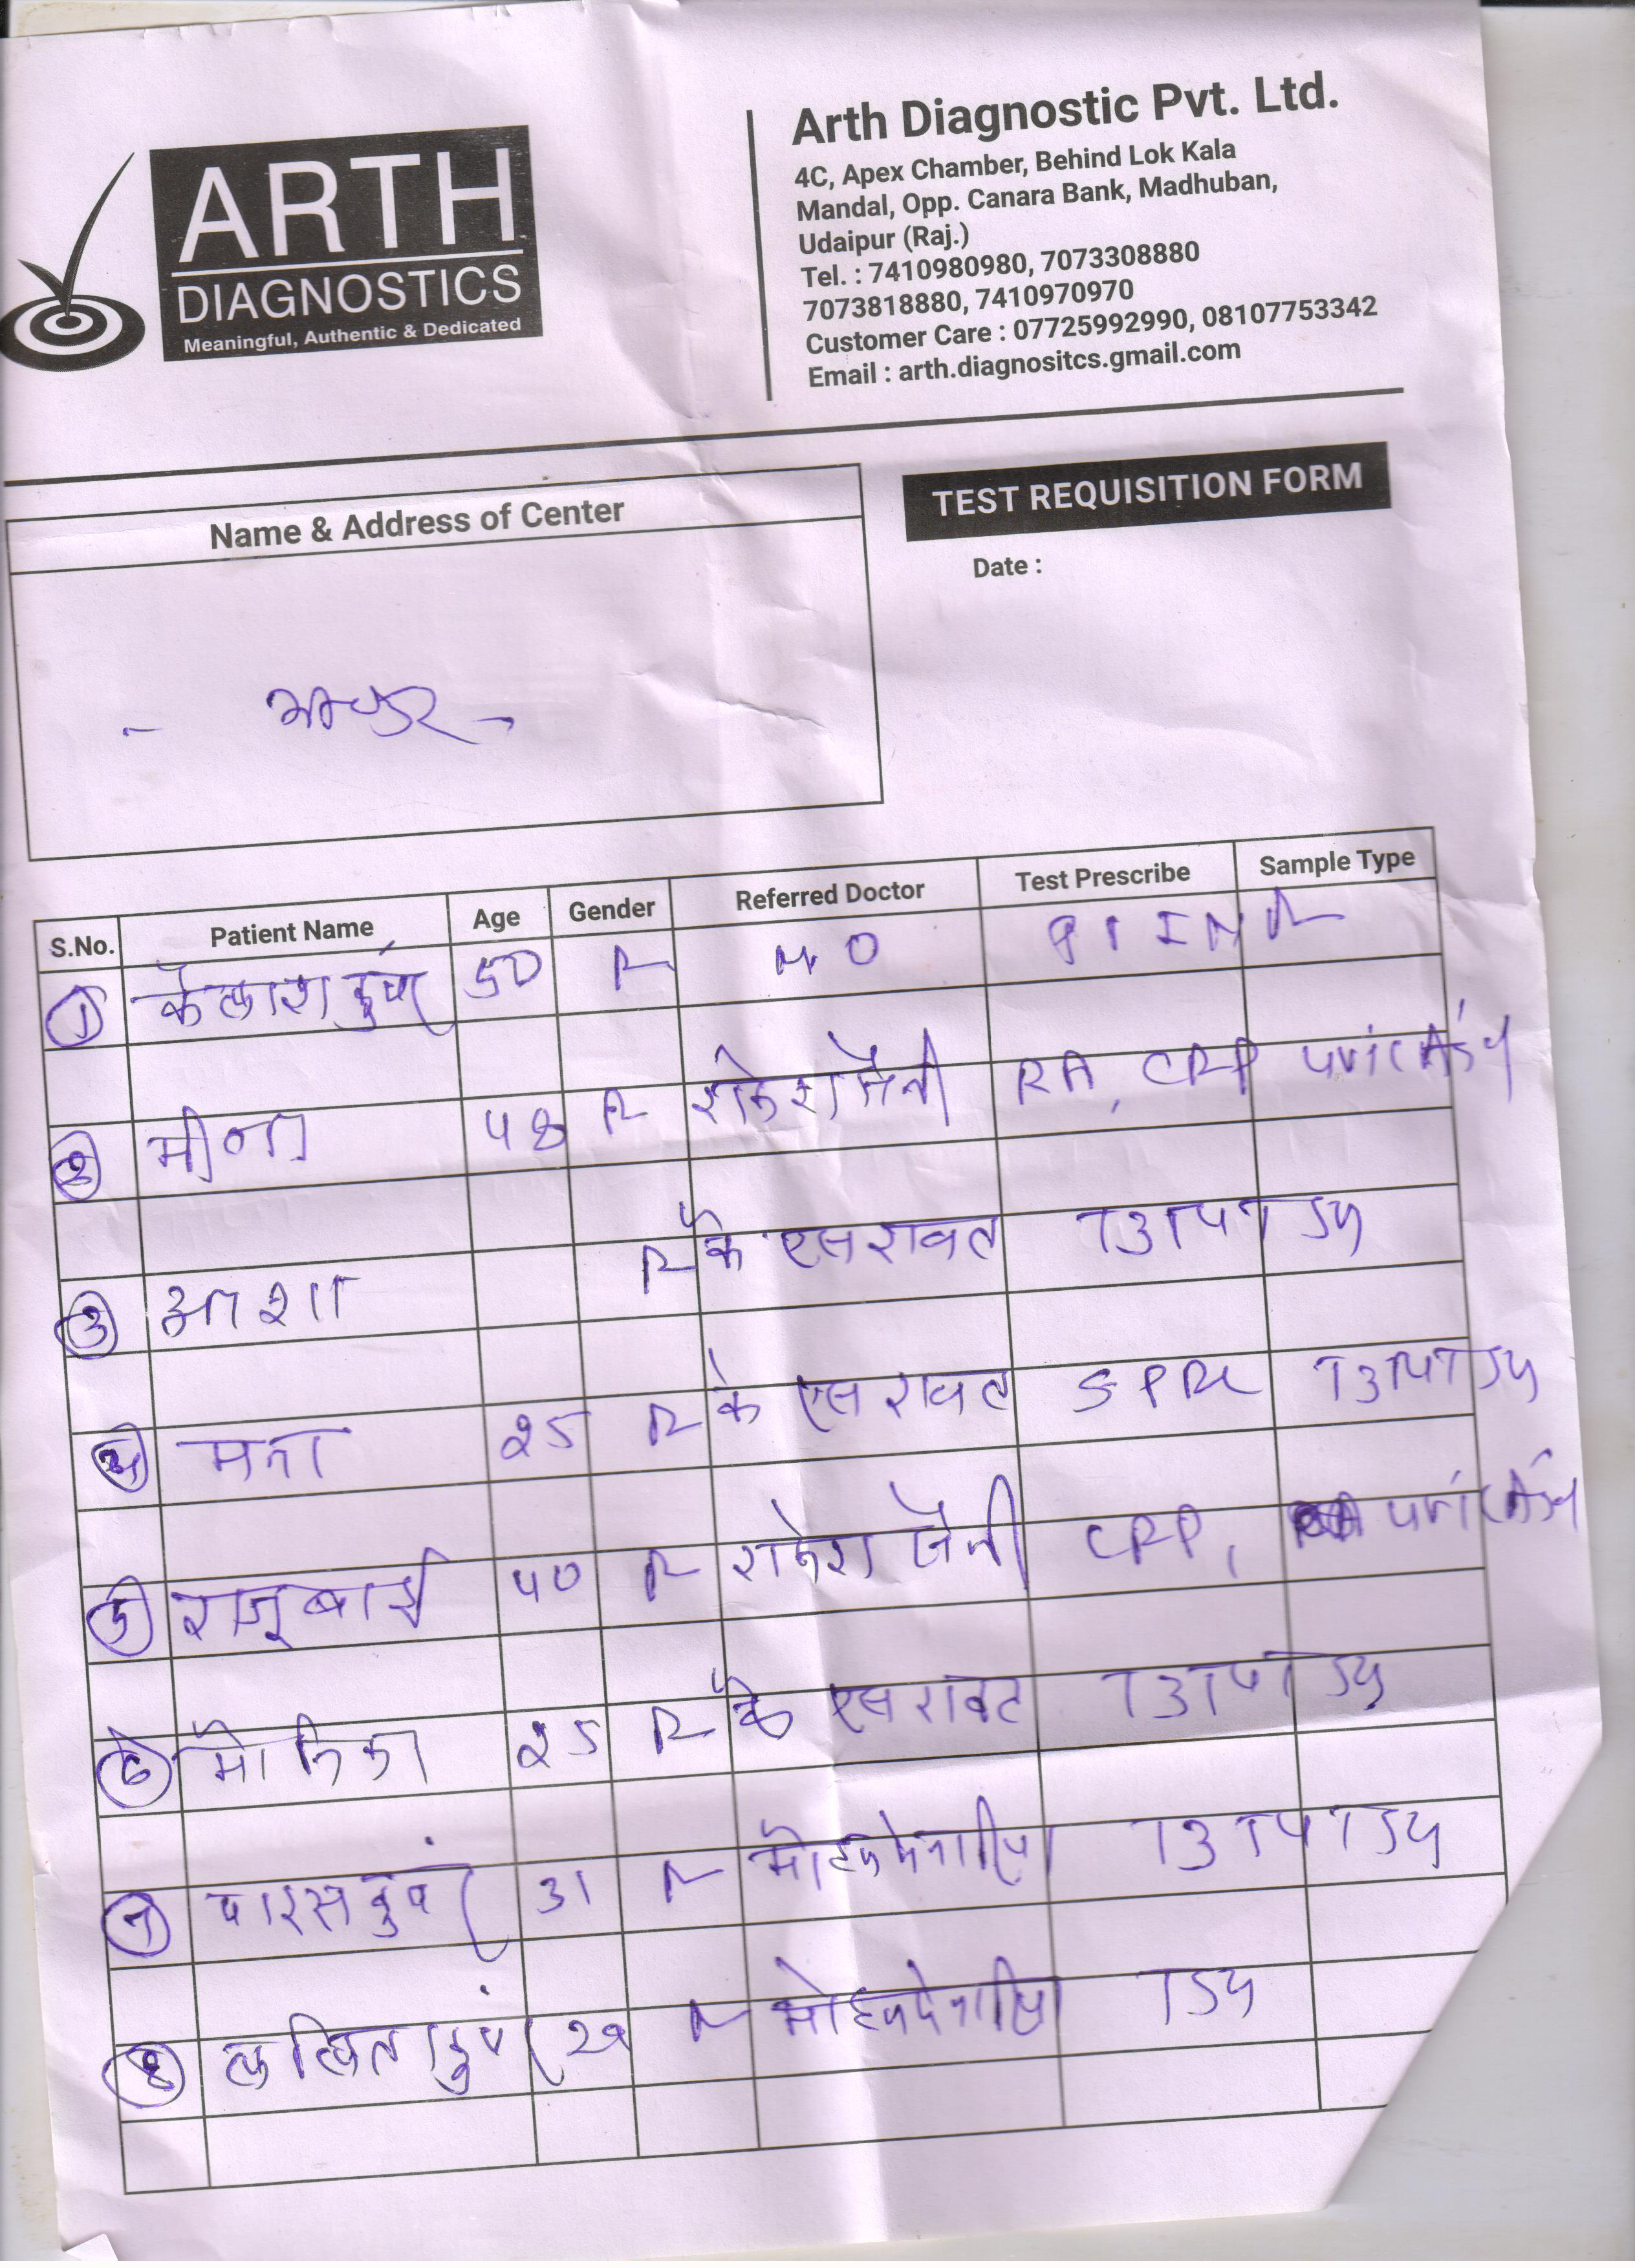 ARTH
DIAGNOSTICS
Meaningful, Authentic & Dedicated
Arth Diagnostic Pvt. Ltd.
4C, Apex Chamber, Behind Lok Kala
Mandal, Opp. Canara Bank, Madhuban,
Udaipur (Raj.)
Tel. : 7410980980, 7073308880
7073818880, 7410970970
Customer Care : 07725992990, 08107753342
Email : arth.diagnositcs.gmail.com
Name & Address of Center
TEST REQUISITION FORM
Date :
S.No. Patient Name Age Gender Referred Doctor Test Prescribe Sample Type
1 कैलाश कुंवर 50 MO PT INR
2 मीना राकेश जैनी RA, CRP uric Acid
3 आशा के एस रावत T3T4TSH
4 25 के एस रावत T3T4TSH
5 राजूबाई राकेश जैनी CRP, uric Acid
6 25 के एस रावट T3T4TSH
7 पारस कुंवर 31 T3T4TSH
8 TSH